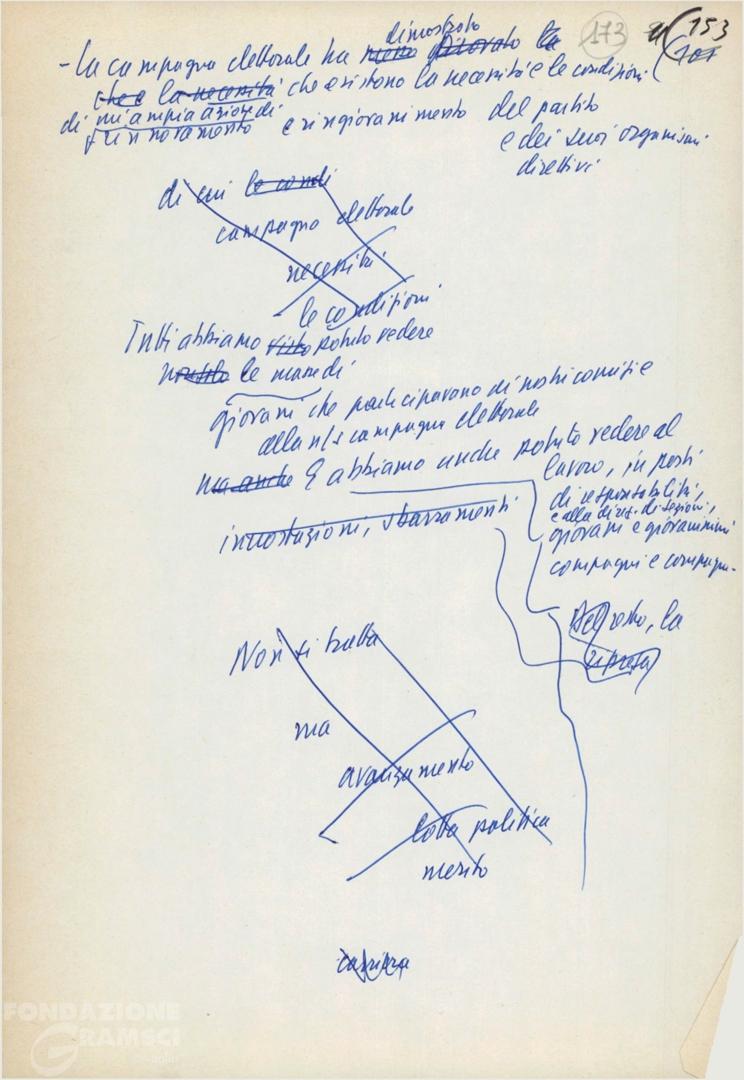 173 153
107
dimostrato
- La campagna elettorale ha messo ritrovato la
che e la necessità che esistono la necessità e le condizioni
di un'ampia azione di
rinnovamento e ringiovanimento del partito
e dei suoi organismi
direttivi
di cui le condi
campagna elettorale
necessità
le condizioni
Tutti abbiamo visto potuto vedere
le masse di
giovani che partecipavano ai nostri comizi e
alla n/s campagna elettorale
ma anche E abbiamo anche potuto vedere al
lavoro, in posti
di responsabilità,
e alla direz. di sezioni,
giovani e giovanissimi
compagni e compagne.
incrostazioni, sbarramenti
Del resto, la
ripresa
Non si tratta
ma
avanzamento
lotta politica
merito
carriera
FONDAZIONE
GRAMSCI